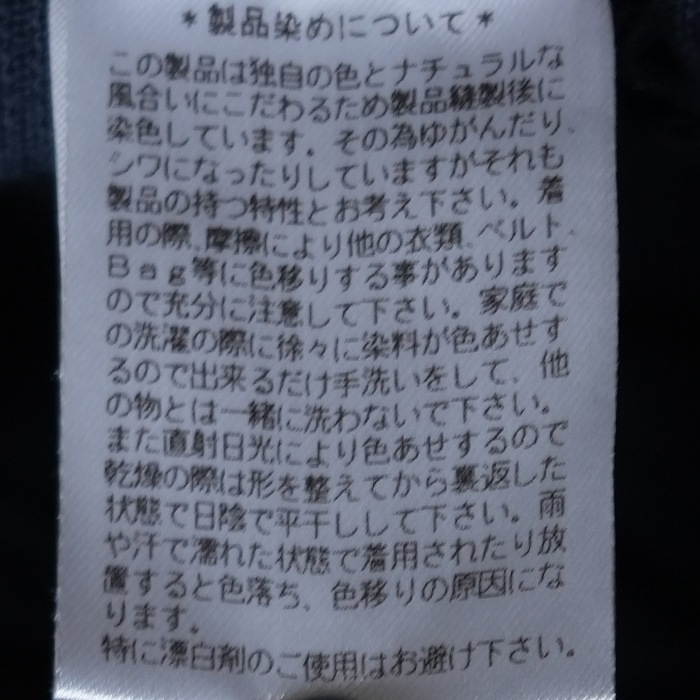 *製品染めについて*
この製品は独自の色とナチュラルな
風合いにこだわるため製品縫製後に
染色しています。その為ゆがんだり、
シワになったりしていますがそれも
製品の持つ特性とお考え下さい。着
用の際、摩擦により他の衣類、ベルト、
Bag等に色移りする事があります
ので充分に注意して下さい。家庭で
の洗濯の際に徐々に染料が色あせす
るので出来るだけ手洗いをして、他
の物とは一緒に洗わないで下さい。
また直射日光により色あせするので
乾燥の際は形を整えてから裏返した
状態で日陰で平干しして下さい。雨
や汗で濡れた状態で着用されたり放
置すると色落ち、色移りの原因にな
ります。
特に漂白剤のご使用はお避け下さい。